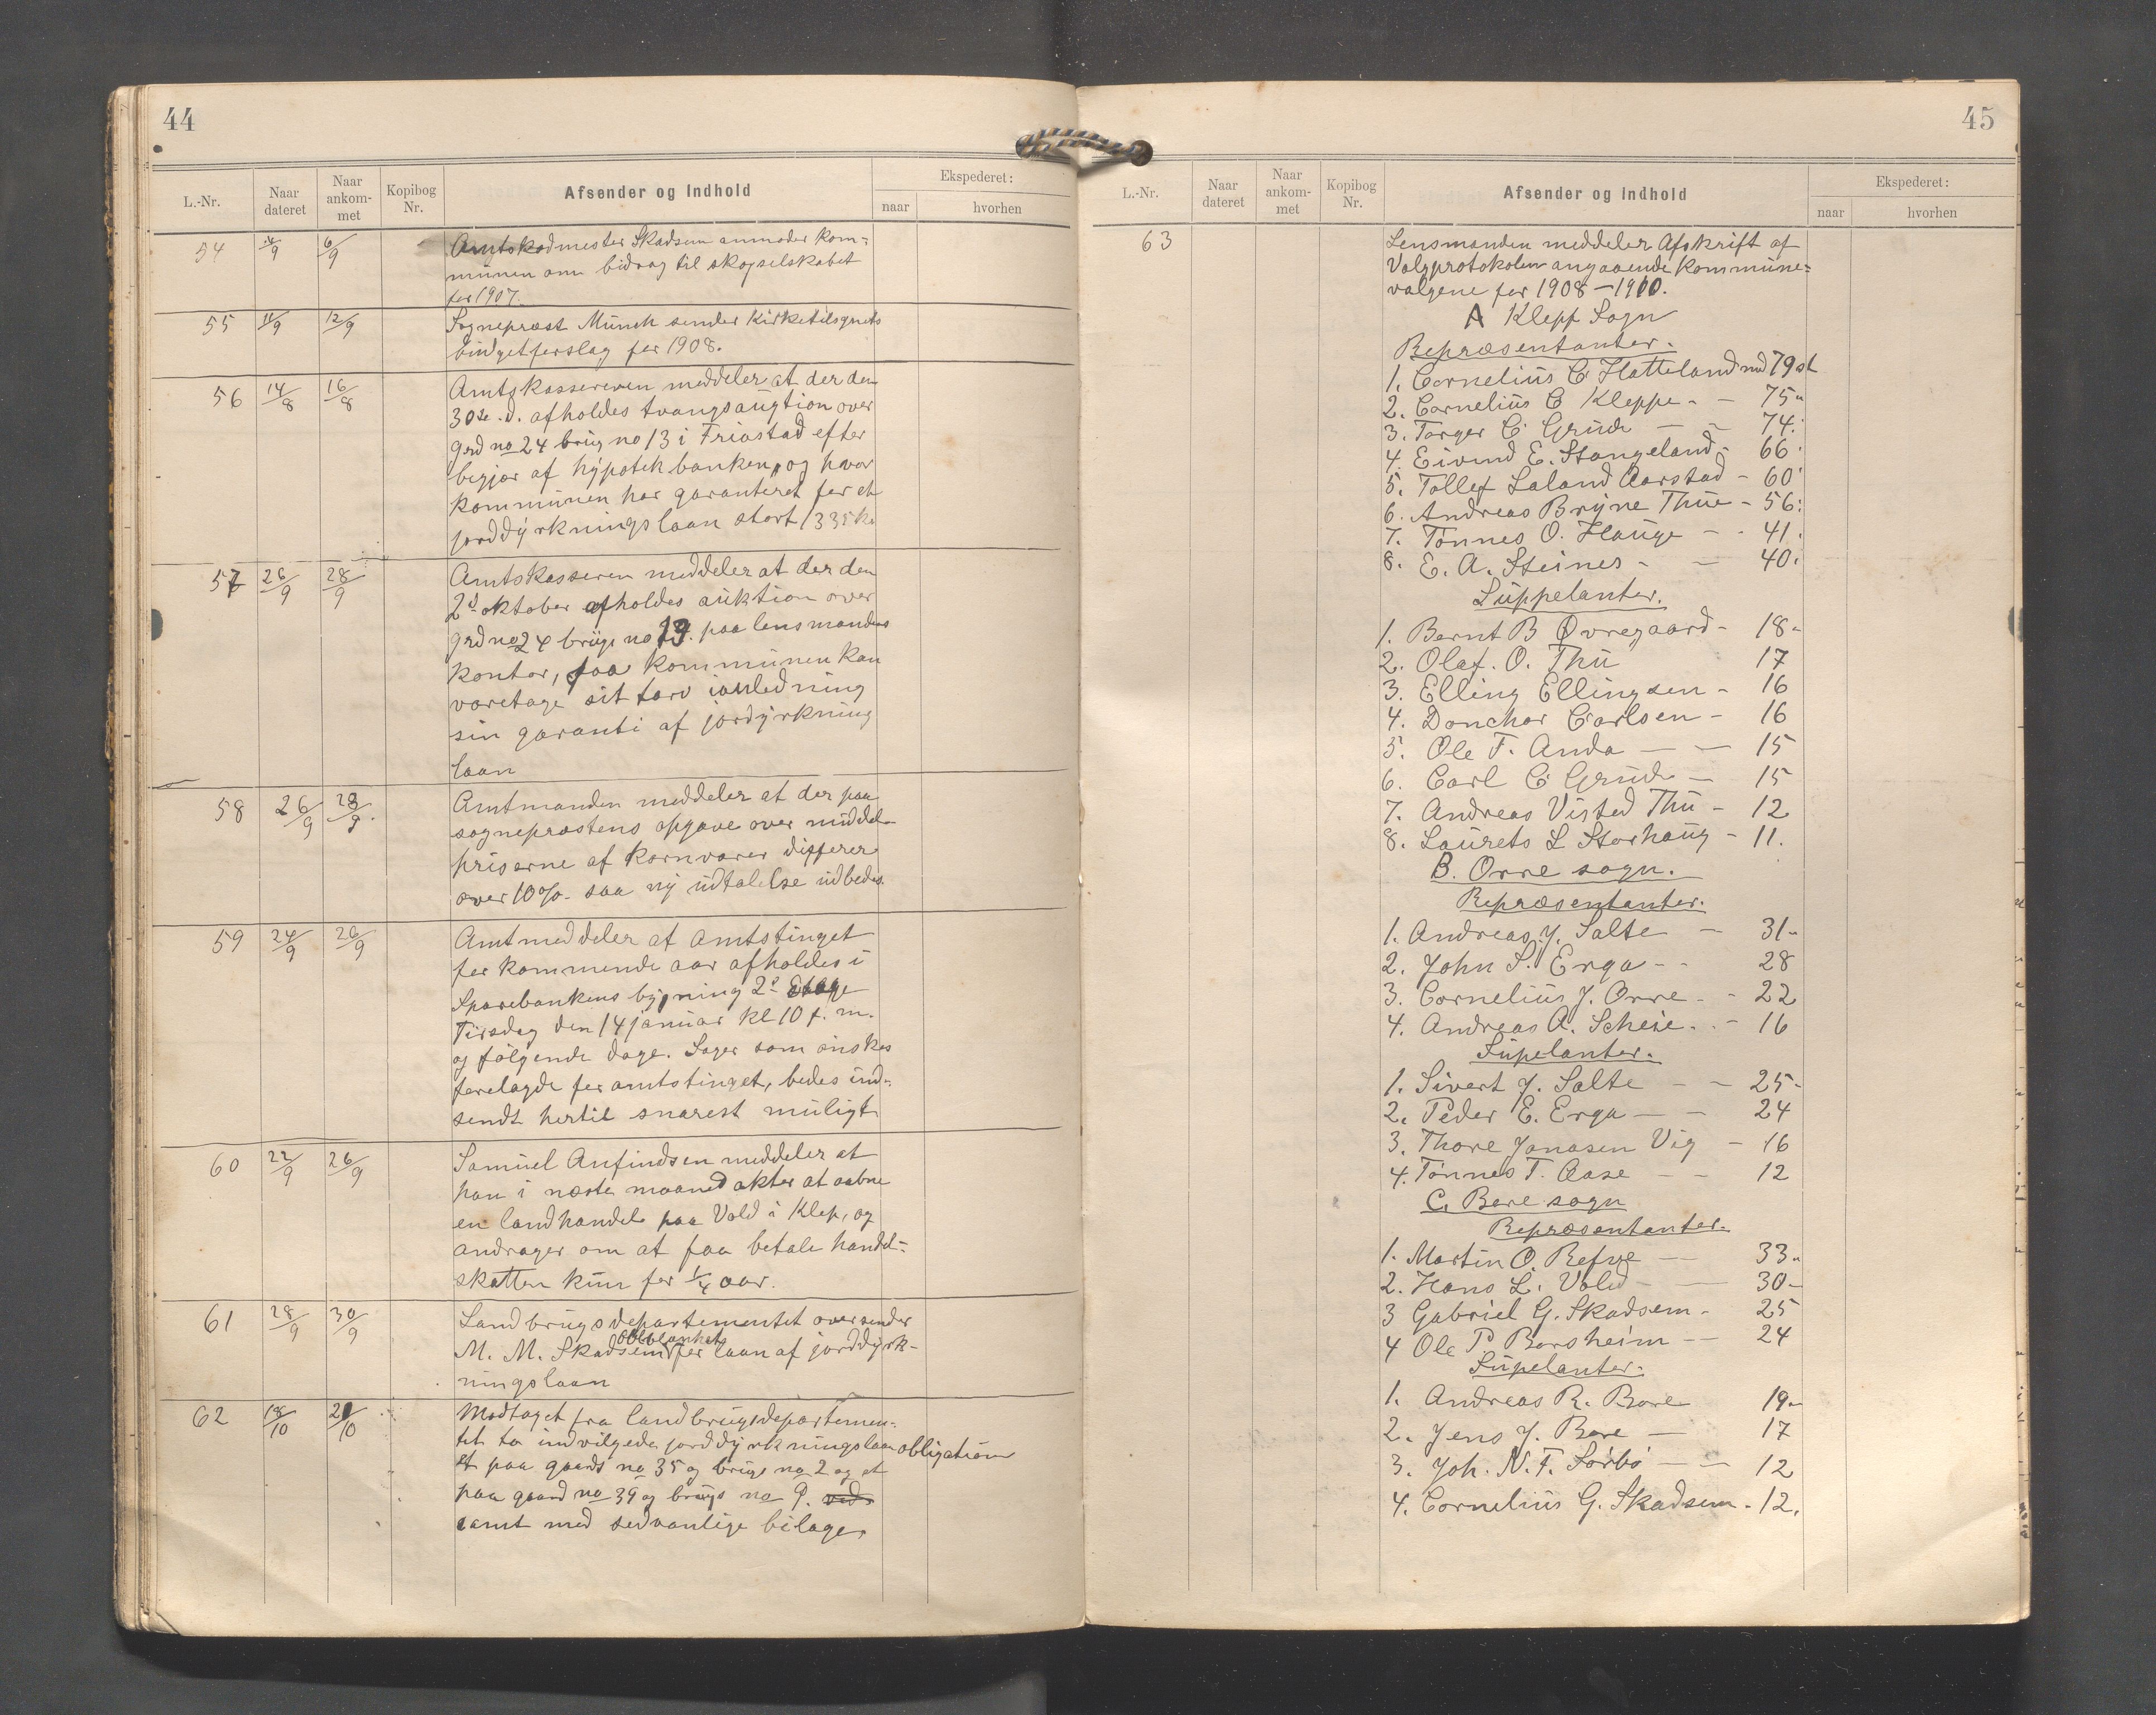 44
L.-Nr.
Naar dateret
Naar ankom-met
Kopibog Nr.
Afsender og Indhold
Ekspederet:
naar
hvorhen
54 4/9 6/9 Amtskadmester Skadsem anmoder kom-
munen om bidrag til skogselskabet
for 1907.
55 11/9 12/9 Sognepræst Münch sender Kirketilsynets
budgetforslag for 1908.
56 14/8 16/8 Amtskassereren meddeler at der den
30te d. afholdes tvangsaugtion over
grd no 24 brug no 13 i Friastad efter
begjær af hypothekbanken, og hvor
kommunen har garanteret for et
jorddyrkningslaan stort 1335 kr
57 26/9 28/9 Amtskasseren meddeler at der den
2d oktober afholdes auktion over
grd no 24 brugs no 13. paa lensmandens
kontor, paa kommunen kan
varetage sit tarv ianledning
sin garanti af jordyrkning
laan
58 26/9 28/9. Amtmanden meddeler at der paa
sognepræstens opgave over middel-
priserne af kornvarer differer
over 10%. saa ny udtalelse udbedes.
59 24/9 26/9 Amtmeddeler at amtstinget
for kommende aar afholdes i
Sparebankens bygning 2d Etage
Tirsdag den 14 januar kl 10 f. m.
og følgende dage. Sager som ønskes
forelagde for amtstinget, bedes ind-
sendt hertil snarest muligt
60 22/9 26/9 Samuel Anfindsen meddeler at
han i næste maaned akter at aabne
en landhandel paa Vold i Klep, og
andrager om at faa betale handel-
skatten kun for 1/4 aar.
61 28/9 30/9 Landbrugsdepartementet oversender
M. M. Skadsem for laan af jorddyrk-
ningslaan
62 18/10 21/10 Modtaget fra landbrugsdepartemen-
tet to indvilgede jorddyrkningslaan obligation
et paa gaards no 35 og brugs no 2 og et
paa gaard no 39 og brugs no 9.
samt med sedvanlige bilage.
45
L.-Nr.
Naar dateret
Naar ankom-met
Kopibog Nr.
Afsender og Indhold
Ekspederet:
naar
hvorhen
63 Lensmanden meddeler Afskrift af
Valgprotokolen angaaende Kommune-
valgene for 1908-1910.
A Klepp Sogn
Repræsentanter.
1. Cornelius C Hatteland med 79 st
2. Cornelius C Kleppe - - 75 "
3. Torger C Grude - - 74.
4. Eivind E. Stangeland - 66.
5. Tollef Laland Aarstad - 60'
6. Andreas Bryne Thue - 56:
7. Tønnes O. Hauge - - 41.
8. E. A. Steines - - 40.
Suppelanter.
1. Bernt B Øvregaard - 18 -
2. Olaf. O. Thu 17
3. Elling Ellingsen - 16
4. Donchor Carlsen - 16
5. Ole T. Anda - - 15
6. Carl C Grude - 15
7. Andreas Visted Thu - 12
8. Laurets L Storhaug - 11.
B. Orre sogn.
Repræsentanter.
1. Andreas J. Salte - 31 -
2. John S. Erga - - 28
3. Cornelius J. Orre - - 22
4. Andreas A. Scheie. - 16
Supelanter.
1. Sivert J. Salte - - 25 -
2. Peder E. Erga - - 24
3. Thore Jonasen Vig - 16
4. Tønnes T. Aase - - 12
C. Bore sogn
Repræsentanter.
1. Martin O. Refve - 33 "
2. Hans L. Vold - - 30 -
3 Gabriel G. Skadsem - 25
4 Ole P. Borsheim - - 24
Supelanter.
1. Andreas R. Bore 19 -
2. Jens J. Bore - 17
3. Joh. N. F. Sørbø - - 12
4. Cornelius G. Skadsem - 12.